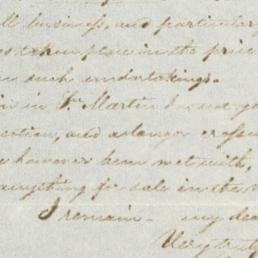 ll business, and particular
taken place in the price
such undertakings.
in St. Martin I
ection, and a larger
however been met with,
anything for sale in the
I remain - my dea
Very truly